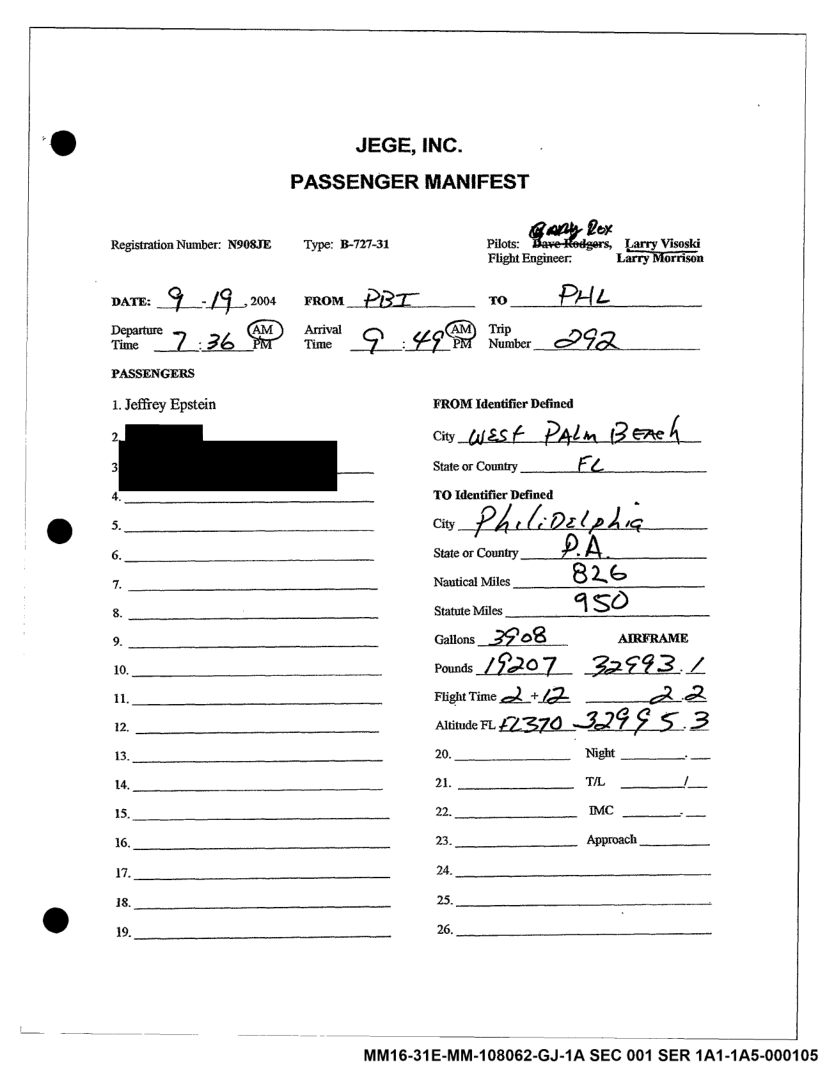 JEGE, INC.
PASSENGER MANIFEST
Gary Rox
Registration Number: N908JE Type: B-727-31 Pilots: Dave Rodgers, Larry Visoski
Flight Engineer: Larry Morrison
DATE: 9 - 19, 2004 FROM PBI TO PHL
Departure Time 7 : 36 AM PM Arrival Time 9 : 49 AM PM Trip Number 292
PASSENGERS
1. Jeffrey Epstein FROM Identifier Defined
2. City WEST PALM BEACh
3 State or Country FL
4. TO Identifier Defined
5. City PhiliDElphia
6. State or Country P.A.
7. Nautical Miles 826
8. Statute Miles 950
9. Gallons 3908 AIRFRAME
10. Pounds 19207 32993.1
11. Flight Time 2 + 12 2.2
12. Altitude FL FL370 32995.3
13. 20. Night .
14. 21. T/L /
15. 22. IMC .
16. 23. Approach
17. 24.
18. 25.
19. 26.
MM16-31E-MM-108062-GJ-1A SEC 001 SER 1A1-1A5-000105